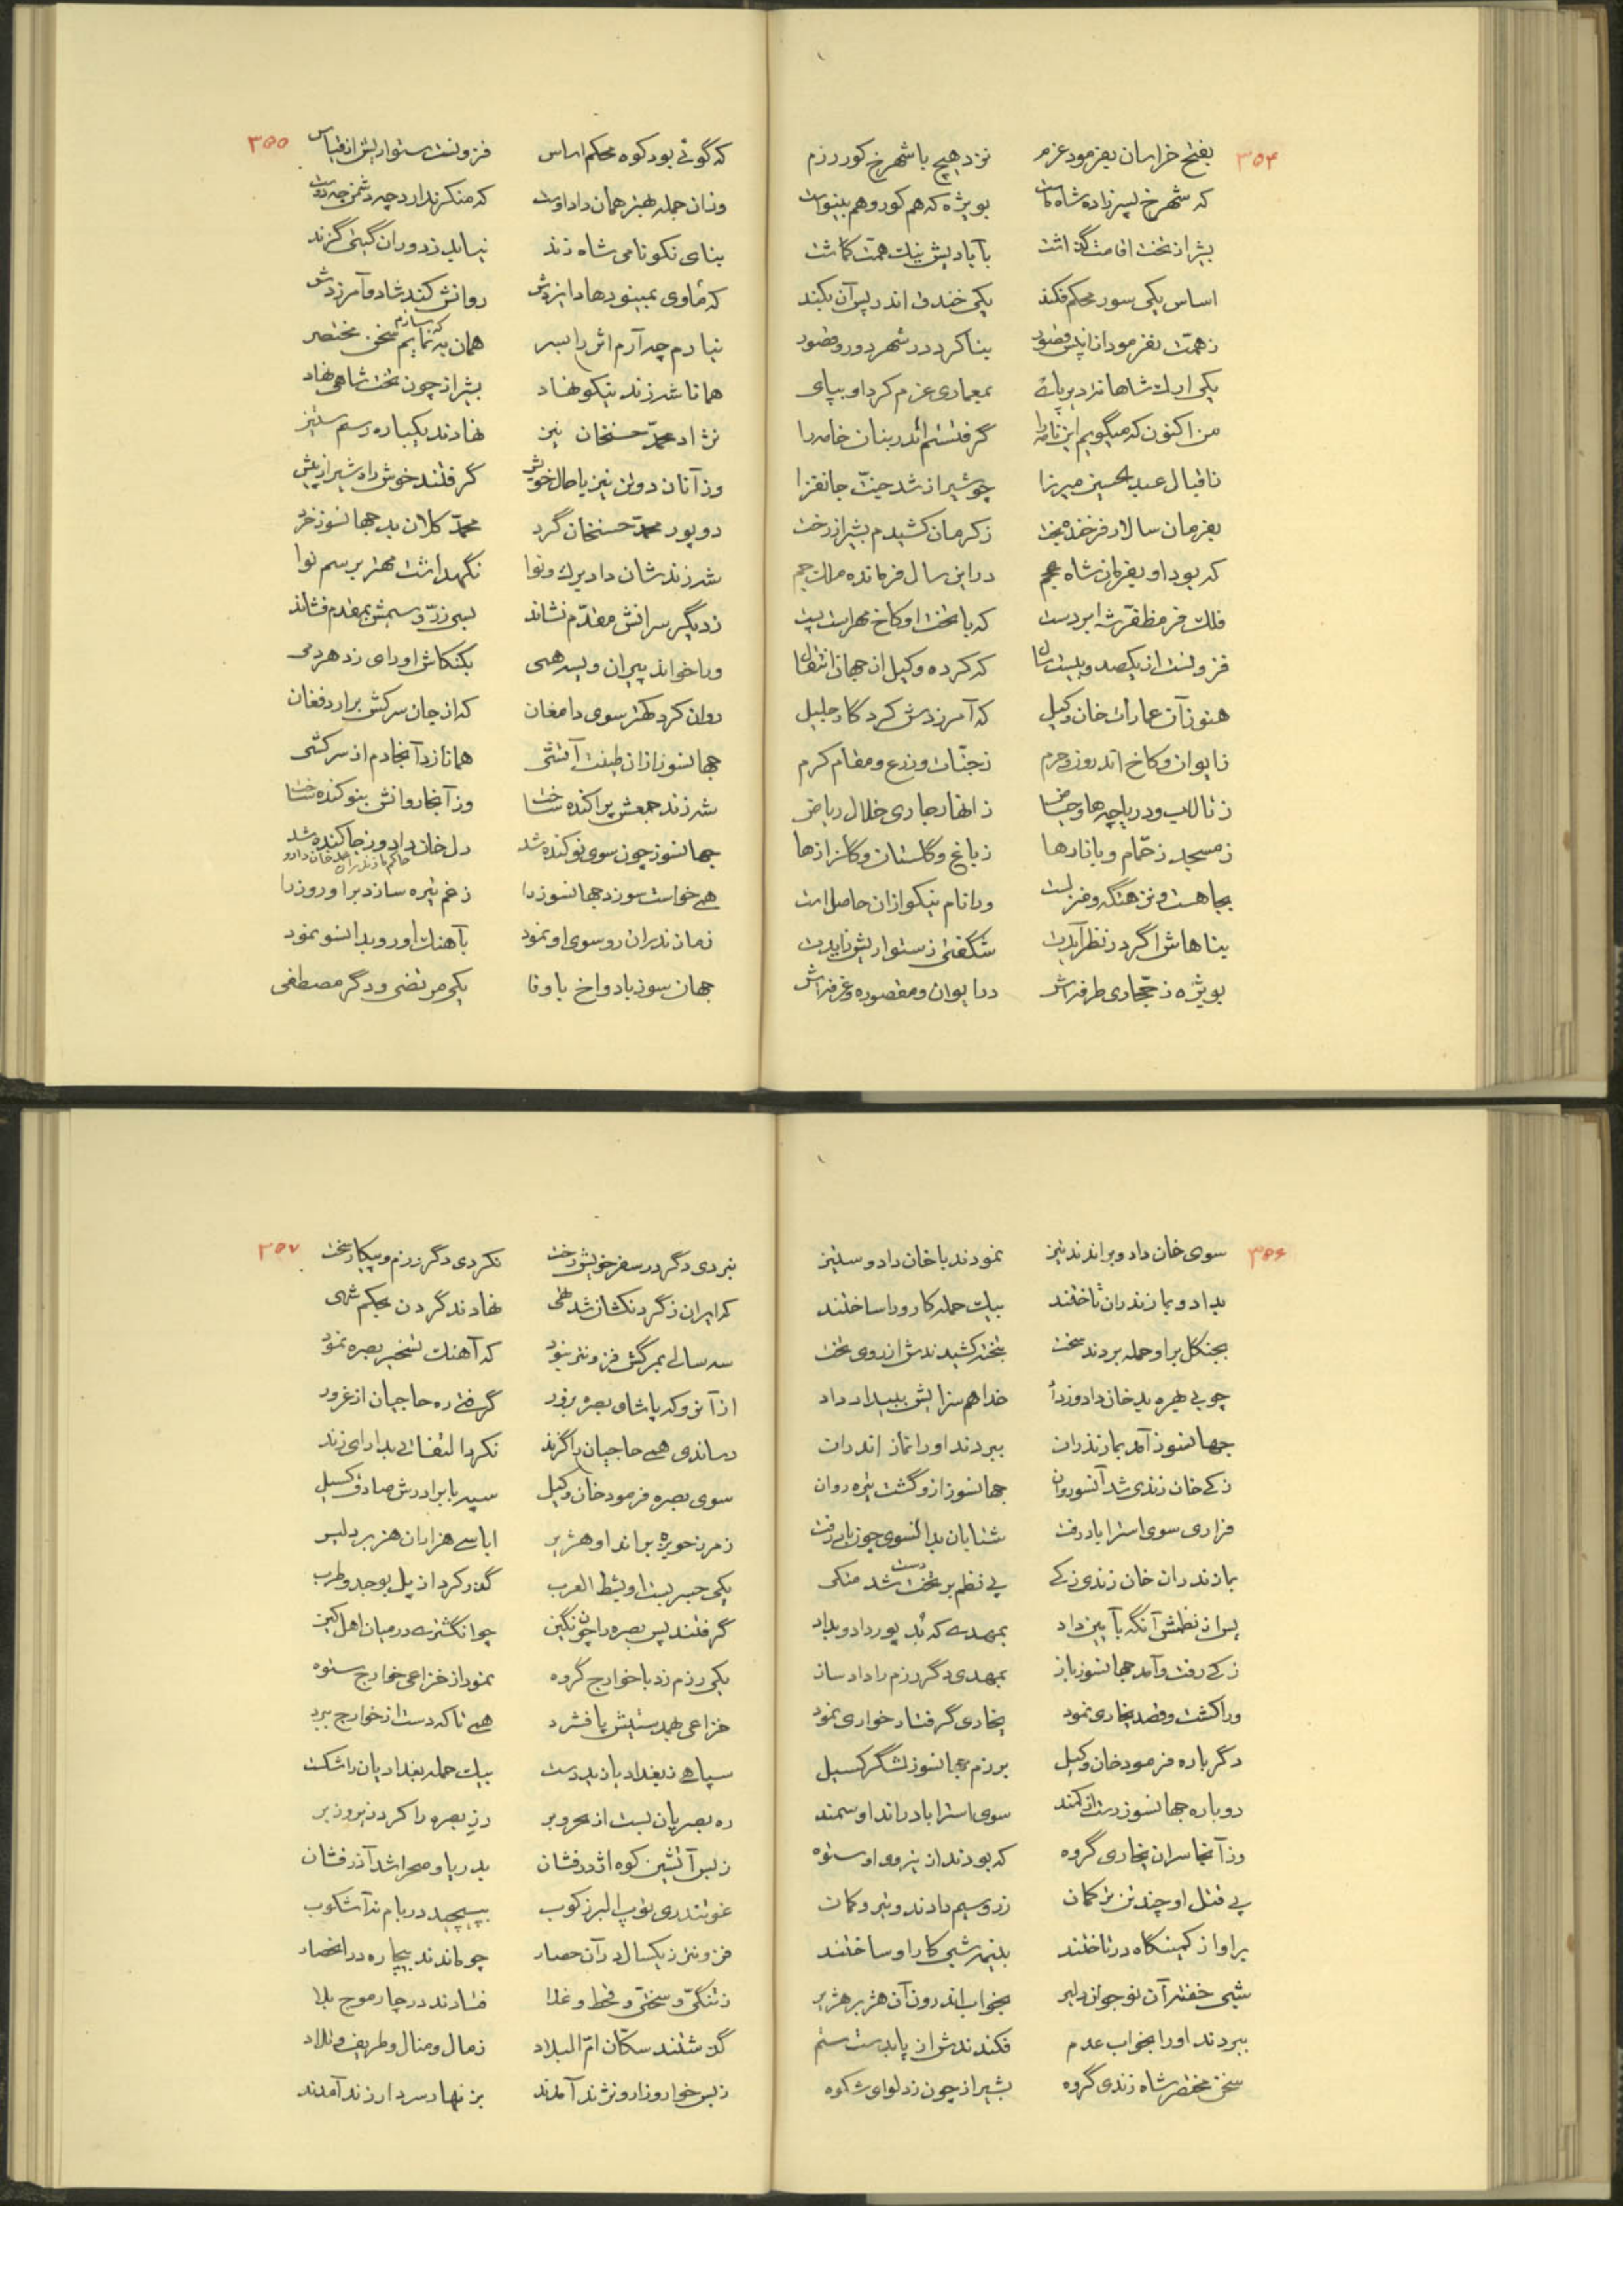 ۳۵۴
بفتح خراسان بفرمود عزم نزد هیچ با شهرخ کور رزم
که شهرخ پسرزاده شاه ماست بویژه که هم کور و هم بینواست
بشیراز تخت اقامت گذاشت بآبادیش نیک همت گماشت
اساس یکی سور محکم فکند یکی خندق اندر پس آن بکند
ز همت بفرمود بنا کرد در شهر دور و قصور
یکی ارک شاهانه بمعماری عزم کرد او بپای
من اکنون که میگویم این نامه را گرفتستم اندر بنان خامه را
ز اقبال عبدالحسین میرزا چو شیراز شد جنت جانفزا
بفرمان سالار فرخنده بخت ز کرمان کشیدم بشیراز رخت
که بود او بفرمان شاه عجم در این سال فرمانده ملک جم
فلک فر مظفر شه که با تخت او کاخ مهر است پست
فزونست از یکصد و بیست سال که کرده وکیل از جهان انتقال
هنوز آن عمارات خان وکیل که آمرزدش کردگار جلیل
ز ایوان و کاخ اندرون و حرم ز جنات و زرع و مقام کرم
ز تالاب و دریاچه‌ها و حیاض ز انهار جاری خلال ریاض
ز مسجد ز حمام و بازارها ز باغ و گلستان و گلزارها
بجا هست و نزهتگه ورا نام نیکو از آن حاصل است
بناهاش اگر در نظر آیدت شگفتی ز ستواریش زایدت
بویژه ز حجاری طرفه‌اش در ایوان و مقصوره و غرفه‌اش
۳۵۵
که گوئی بود کوه محکم اساس فزونست ستواریش از قیاس
وزان جمله بهتر همان داد اوست که منکر ندارد چه دشمن چه دوست
بنای نکونامی شاه زند نیابد ز دوران گیتی گزند
که مأوی بمینو دهاد ایزدش روانش کند شاد و آمرزدش
نیارم چه آرم اثر را بسر همان به که سازم نمایم سخن مختصر
همانا شه زند نیکو نهاد بشیراز چون تخت شاهی نهاد
نژاد محمد حسنخان نیز نهادند یکباره رسم ستیز
وز آنان دو تن نیز با حال خویش گرفتند خوش راه شیراز پیش
دو پور محمد حسنخان گرد محمد کلان بد جهانسوز خرد
شه زندشان داد برگ و نوا نگهداشت مهتر برسم نوا
ز دیگر سرانش مقدم نشاند بسی زر و سیمش بمقدم فشاند
ورا خواند پیران ویسه همی بکنکاش او رای زد هر دمی
روان کرد کهتر سوی دامغان که از جان سرکش برآرد فغان
جهانسوز از آن طینت آتشی همانا زد آنجا دم از سرکشی
شه زند جمعش پراکنده ساخت وز آنجا روانش بنوکنده ساخت
جهانسوز چون سوی نوکنده شد دل خان دادو ز جا کنده شد
حاکم مازندران خان دادو
همی خواست سوزد جهانسوز را ز غم تیره سازد بر او روز را
ز مازندران رو سوی او نمود بآهنگ او رو بدانسو نمود
جهان سوز با دو اخ با وفا یکی مرتضی و دگر مصطفی
۳۵۶
سوی خان دادو براندند تیز نمودند با خان دادو ستیز
بدادو بمازندران تاختند بیک حمله کار ورا ساختند
بجنگل بر او حمله بردند سخت بتخته کشیدندش از روی تخت
چو بی‌بهره بد خان دادو ز داد خدا هم سزایش ببیداد داد
جهانسوز آمد بمازندران ببردند او را نماز اندران
زکی خان زندی شد آنسو روان جهانسوز از او گشت تیره روان
فراری سوی استراباد رفت شتابان بدانسوی چون باد رفت
بمازندران خان زندی زکی پی نظم بر تخت دست شد متکی
پس از نظمش آنگه بآیین داد بمهدی که بد پور دادو بداد
زکی رفت و آمد جهانسوز باز بمهدی دگر رزم را داد ساز
ورا کشت و قصد بخاری نمود بخاری گرفتار خواری نمود
دگرباره فرمود خان وکیل برزم جهانسوز لشگر گسیل
دوباره جهانسوز رست از کمند سوی استراباد راند او سمند
وز آنجا سران بخاری گروه که بودند از نیروی او ستوه
پی قتل او چند تن ترکمان زر و سیم دادند و تیر و کمان
بر او از کمینگاه در تاختند بنیمه شبی کار او ساختند
شبی خفته آن نوجوان دلیر بخواب اندرون آن هژبر هژیر
ببردند او را بخواب عدم فکندندش از پا بدست ستم
سخن مختصر شاه زندی گروه بشیراز چون زد لوای شکوه
۳۵۷
نبردی دگر در سفر خویش رخت نکردی دگر رزم و پیکار سخت
که ایران ز گردنکشان شد تهی نهادند گردن بحکم شهی
سه سالی بمرگش فزونتر نبود که آهنگ تسخیر بصره نمود
از آنرو که پاشای بصره بزور گرفتی ره حاجیان از غرور
رساندی همی حاجیان را گزند نکرد التفاتی بدارای زند
سوی بصره فرمود خان وکیل سپه با برادرش صادق گسیل
ز مرز حویزه براند او هژیر ابا سی هزاران هزبر دلیر
یکی جسر بست او بشط العرب گذر کرد از پل بوجد و طرب
گرفتند پس بصره را چون نگین چو انگشتری در میان اهل کین
یکی رزم زد با خوارج گروه نمود از خزاعی خوارج ستوه
خزاعی بهمدستیش پا فشرد همی تا که دست از خوارج ببرد
سپاهی ز بغداد باز بدرست بیک حمله بغدادیان را شکست
ره بصریان بست از بحر و بر دز بصره را کرد زیر و زبر
ز بس آتشین کوه اژدرفشان بدریا و صحرا شد آذرفشان
غو تندری توپ البرزکوب بپیچید در بام نه آشکوب
فزونتر ز یکسال در آن حصار چو ماندند بیچاره در انحصار
ز تنگی و سختی و قحط و غلا فتادند در چار موج بلا
گذشتند سکان ام البلاد ز مال و منال و طریف و تلاد
ز بس خوار و زار و نژند آمدند بزنهار سردار زند آمدند